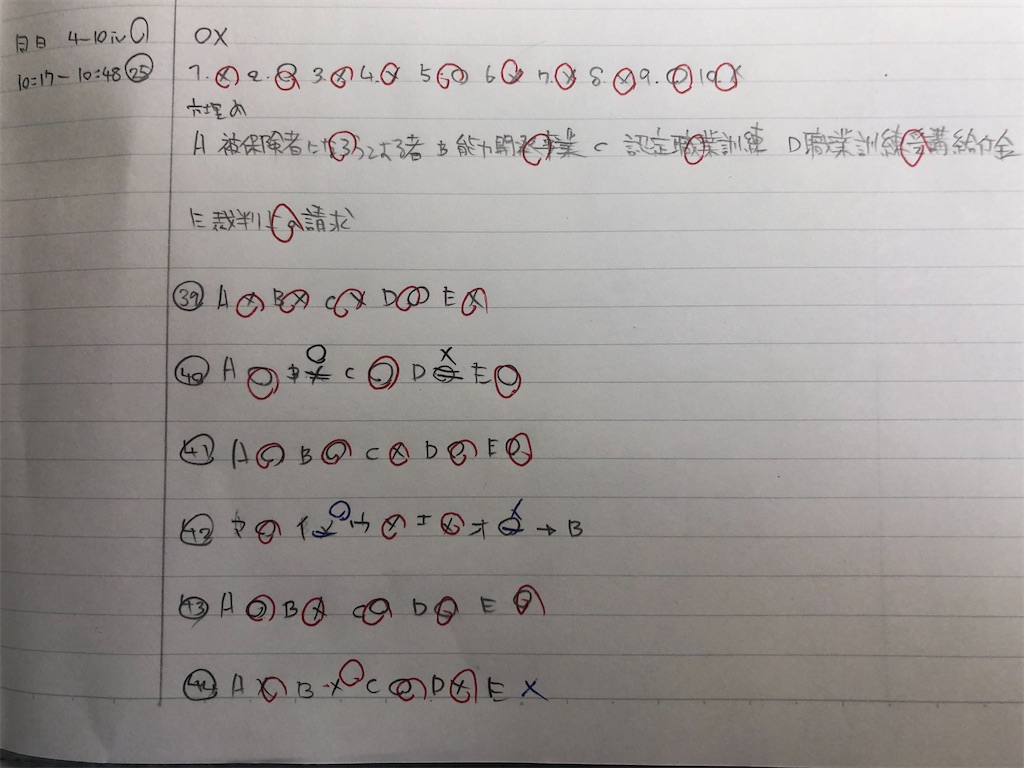 4-10
OX
10:17-10:48 25
1. X 2. O 3. X 4. X 5 O 6 7. X 8. X 9. O 10 X
穴埋め
A 被保険者になろうとする者 B 能力開発事業 C 認定職業訓練 D職業訓練受講給付金
E 裁判上の請求
39 A X B X C X D O E X
40 A O B O X C O D X O E O
41 A O B O C X D O E O
42 ア O イ X O ウ X エ X オ O → B
43 A O B X C O D O E O
44 A X B X O C O D X E X